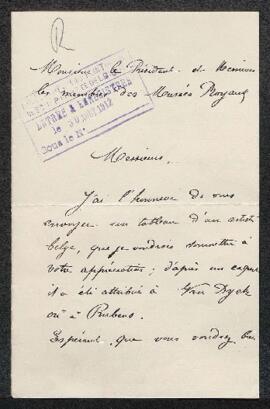 R
Monsieur le Président de Messieurs
les membres des Musées Royaux
LETTRE A ENREGISTRER
le 30 1912
Sous le N°
Messieurs,
J'ai l'honneur de vous
envoyer un tableau d'un artiste
belge, que je voudrais soumettre à
votre appréciation; d'après un expert
il a été attribué à Van Dyck
ou à Rubens.
Espérant que vous voudrez bien